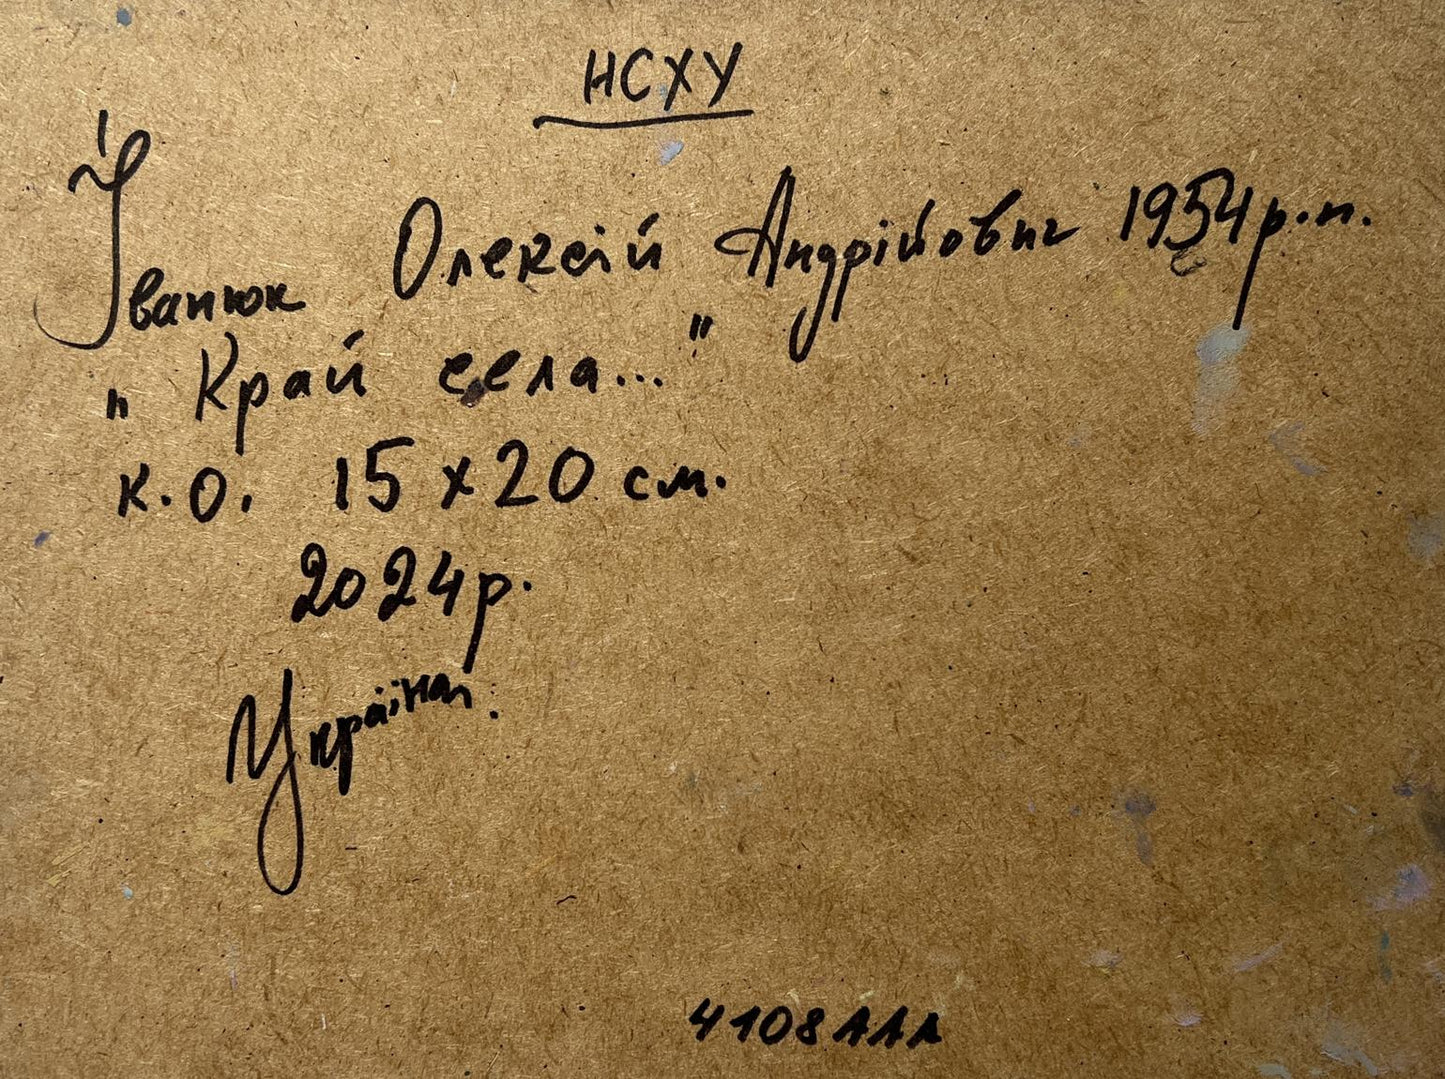 НСХУ
Іванюк Олексій Андрійович 1954р.н.
„Край села..."
к.о. 15х20 см.
2024р.
Україна.
4108ААА